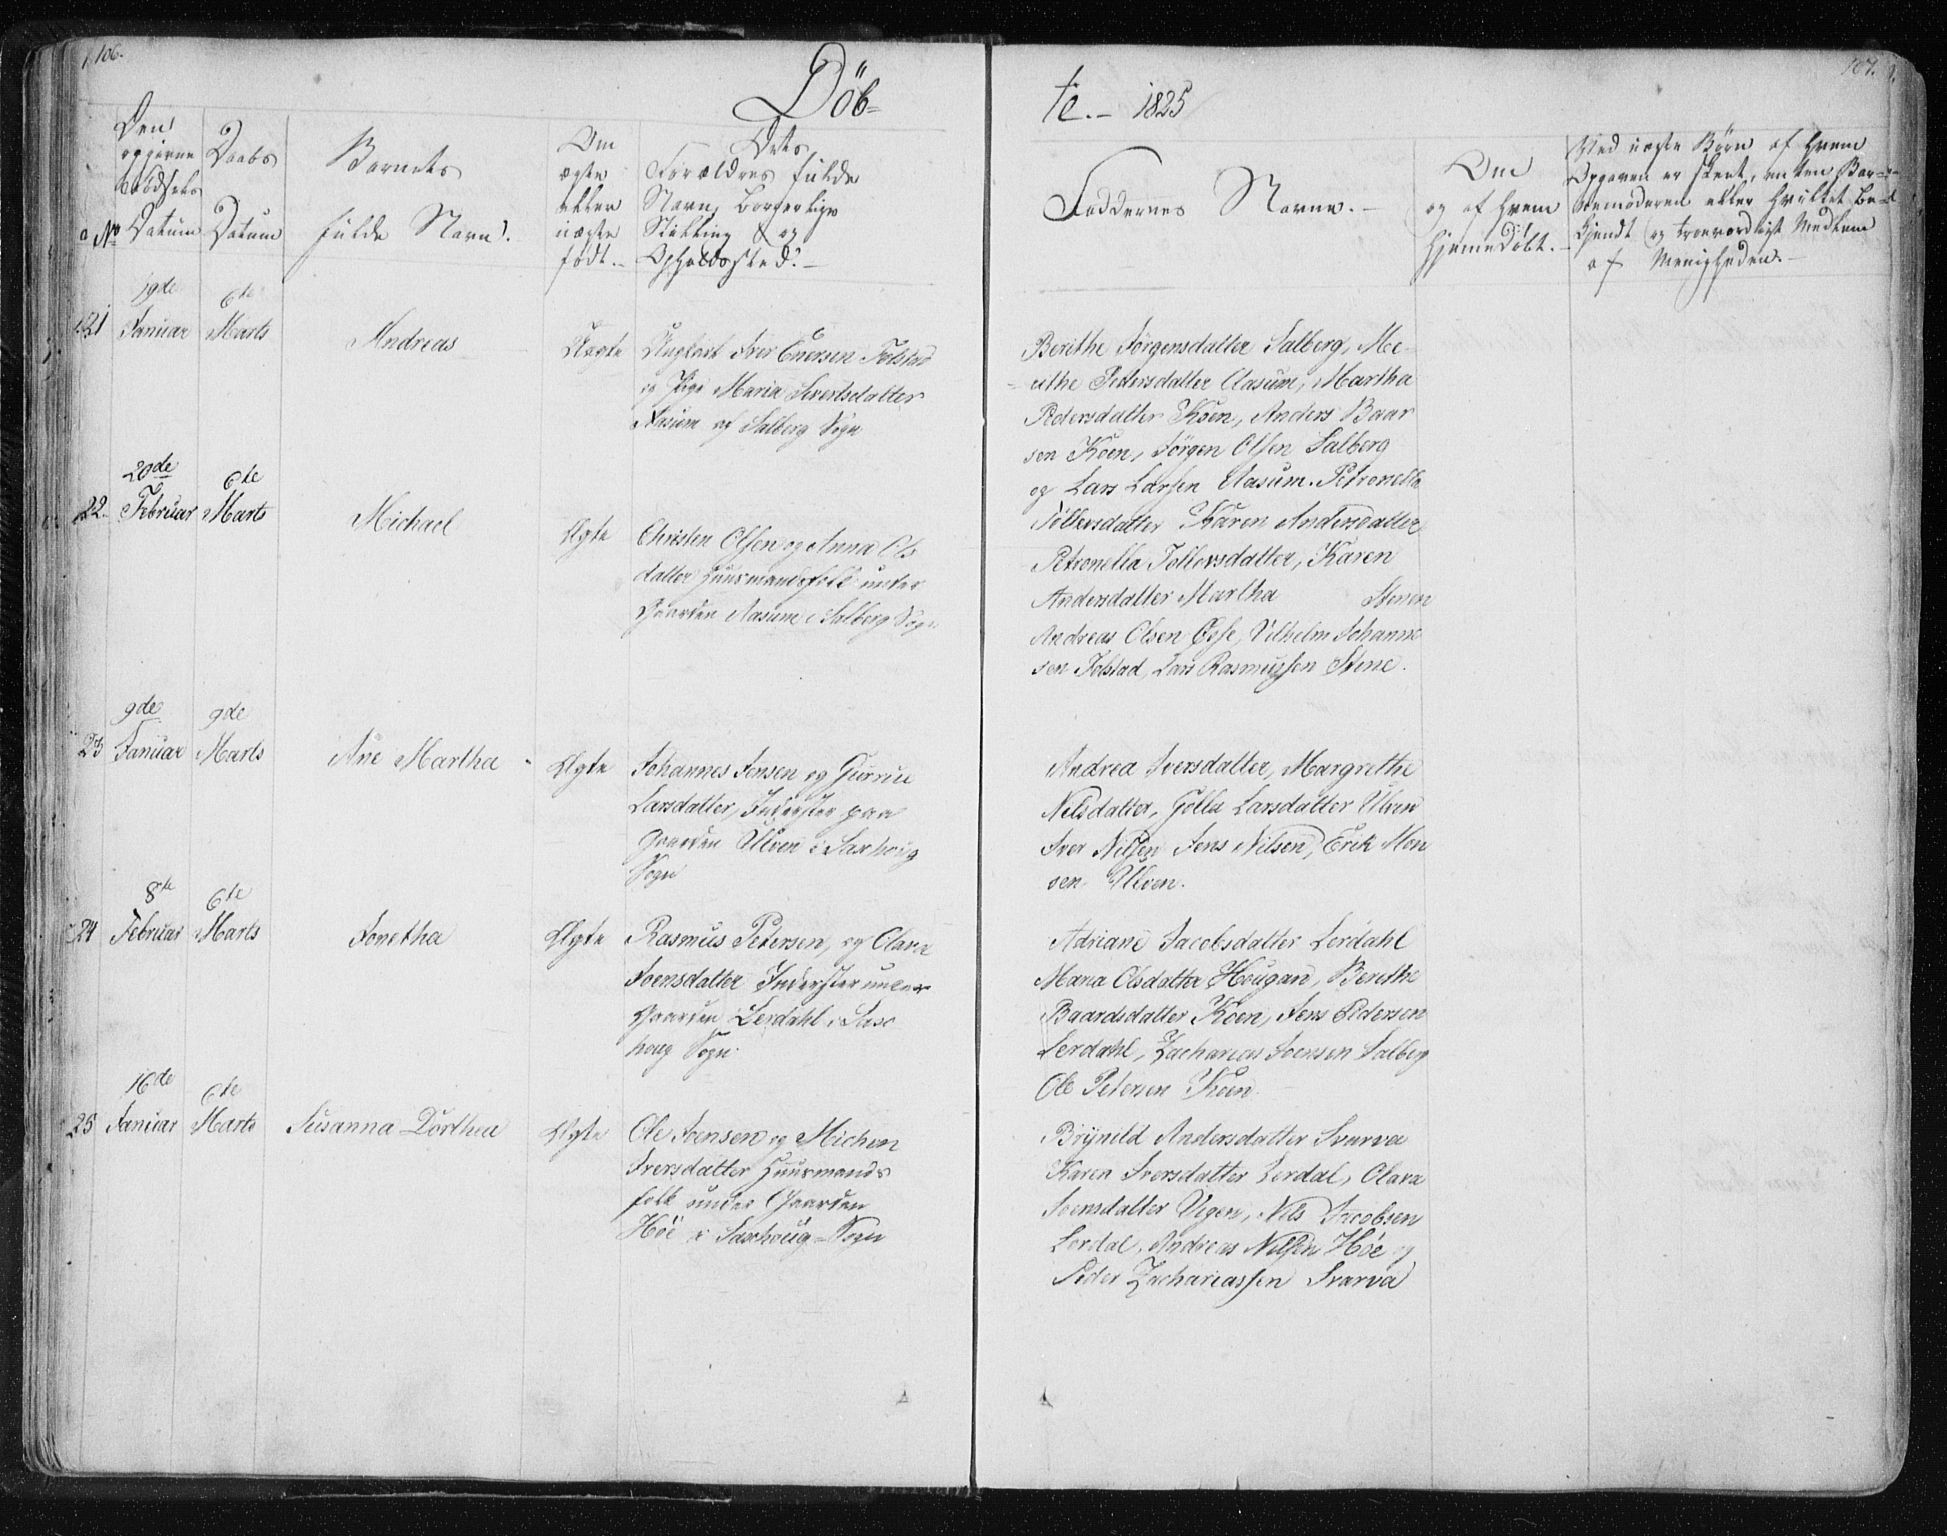 106.
107.
Döb-
te.- 1825
Den
opgivne
Fødsels
Datum
Daabs
Datum
Barnets
fulde Navn.
Om
ægte
eller
uægte
født.-
Dets
Forældres fulde
Navn, borgerlige
Stilling og
Opholdssted.-
Faddernes Navne.-
Om
og af hvem
hjemmedöbt.-
Ved uægte Børn af hvem
Opgaven er skeet, enten Bar-
nemoderen eller hvilket be-
kjendt og troeværdigt Medlem
af Menigheden.-
No
21
19de
Januar
6te
Marts
Andreas
Uægte
Ungkarl Iver Enersen Tolstad
og Pige Maria Sivertsdatter
Aasum af Salberg Sogn
Berithe Jörgensdatter Salberg, Me-
rethe Petersdatter Aasum, Martha
Pedersdatter Koen, Anders Baar
sen Koen, Jörgen Olsen Salberg
og Lars Larsen Aasum. Petronella
Tollersdatter Karen Andersdatter
22.
20de
Februar
6te
Marts
Michael
Ægte
Christen Olsen og Anna Ols
datter Huusmandsfolk under
Gaarden Aasum i Salberg Sogn
Petronella Tollersdatter, Karen
Andersdatter Martha Stenen
Andreas Olsen Vilhelm Johanne
sen Tolstad, Lars Rasmussen Stene.
23
9de
Januar
9de
Marts
Ane Martha
Ægte
Johannes Jensen og Gurrue
Larsdatter, Inderster paa
Gaarden Ulven i Saxhoug
Sogn
Andrea Iversdatter, Margrethe
Nilsdatter, Golla Larsdatter Ulven
Iver Nilsen Jens Nilsen, Erik Mon
sen Ulven.
24
8te
Februar
6te
Marts
Jonetha
Ægte
Rasmus Petersen, og Olava
Joensdatter Inderster under
Gaarden Lerdahl i Sax
houg Sogn.
Adriane Jacobsdatter Lerdahl
Maria Olsdatter Hougan, Berithe
Baardsdatter Koen, Jens Pedersen
Lerdahl, Zacharias Joensen Salberg
Ole Petersen Koen.
25
16de
Januar
6te
Marts
Susanna Dorthea
Ægte
Ole Joensen og Michen
Iversdatter Huusmands
folk under Gaarden
Höe i Saxhoug-Sogn
Brynild Andersdatter Svarva
Karen Iversdatter Lerdal, Olava
Joensdatter Vegen, Nils Jacobsen
Lerdal, Andreas Nilsen Höe og
Peder Zachariassen Svarva